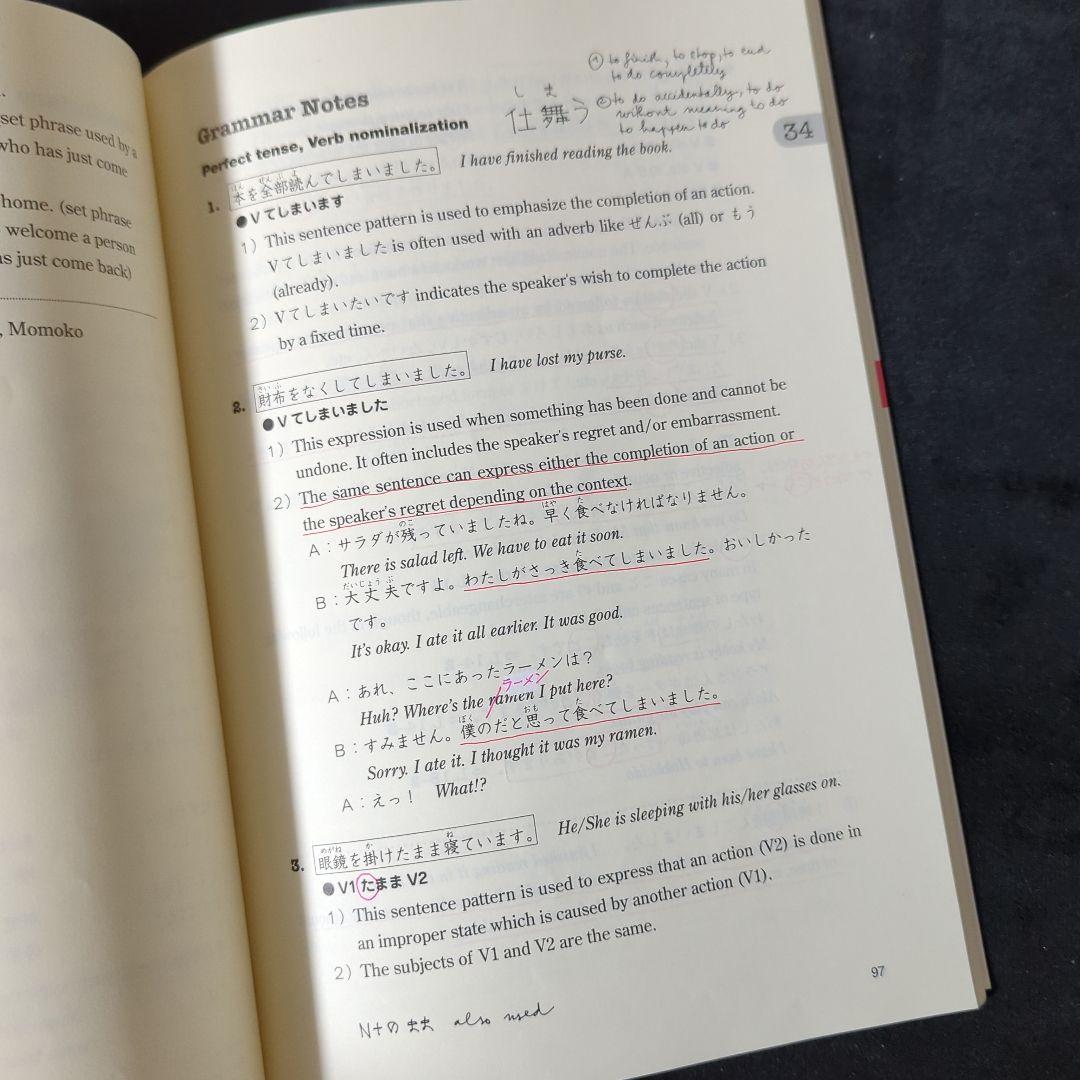 set phrase used by a
who has just come
home. (set phrase
welcome a person
s just come back)
, Momoko
① to finish, to stop, to end
to do completely
② to do accidentally, to do
without meaning to do
to happen to do
しま
仕舞う
34
Grammar Notes
Perfect tense, Verb nominalization
1. 本を全部読んでしまいました。 I have finished reading the book.
●Vてしまいます
1) This sentence pattern is used to emphasize the completion of an action.
Vてしまいました is often used with an adverb like ぜんぶ (all) or もう
(already).
2) Vてしまいたいです indicates the speaker's wish to complete the action
by a fixed time.
2. 財布をなくしてしまいました。 I have lost my purse.
●Vてしまいました
1) This expression is used when something has been done and cannot be
undone. It often includes the speaker's regret and/or embarrassment.
2) The same sentence can express either the completion of an action or
the speaker's regret depending on the context.
A：サラダが残っていましたね。早く食べなければなりません。
There is salad left. We have to eat it soon.
B：大丈夫ですよ。わたしがさっき食べてしまいました。おいしかった
です。
It's okay. I ate it all earlier. It was good.
A：あれ、ここにあったラーメンは？
ラーメン
Huh? Where's the ramen I put here?
B：すみません。僕のだと思って食べてしまいました。
Sorry. I ate it. I thought it was my ramen.
A：えっ！ What!?
3. 眼鏡を掛けたまま寝ています。 He/She is sleeping with his/her glasses on.
●V1たままV2
1) This sentence pattern is used to express that an action (V2) is done in
an improper state which is caused by another action (V1).
2) The subjects of V1 and V2 are the same.
97
N+のまま also used